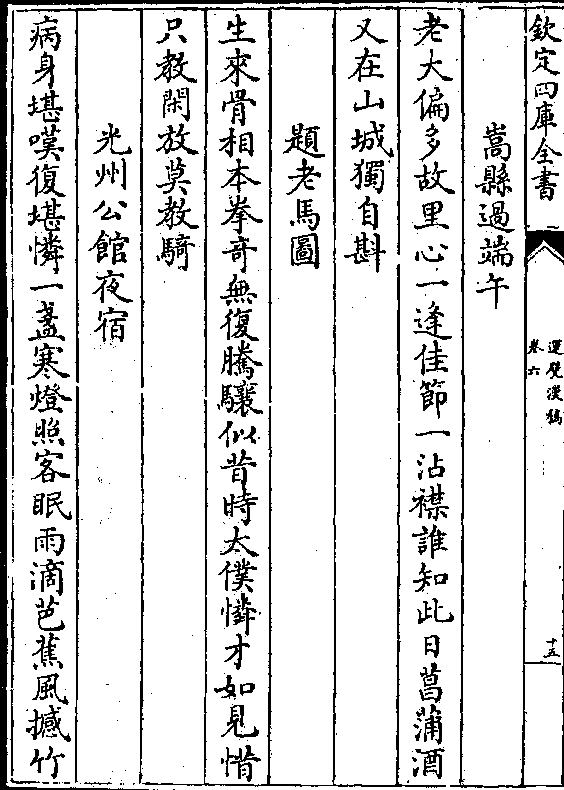 欽定四庫全書
運甓漫稿
卷六
十五
嵩縣過端午
老大偏多故里心一逢佳節一沾襟誰知此日菖蒲酒
又在山城獨自斟
題老馬圖
生來骨相本拳奇無復騰驤似昔時太僕憐才如見惜
只教閑放莫教騎
光州公館夜宿
病身堪嘆復堪憐一盞寒燈照客眠雨滴芭蕉風撼竹